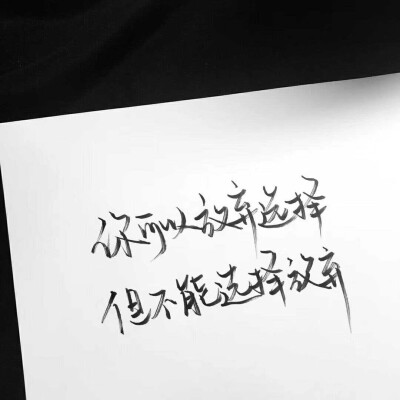 你可以放弃选择
但不能选择放弃